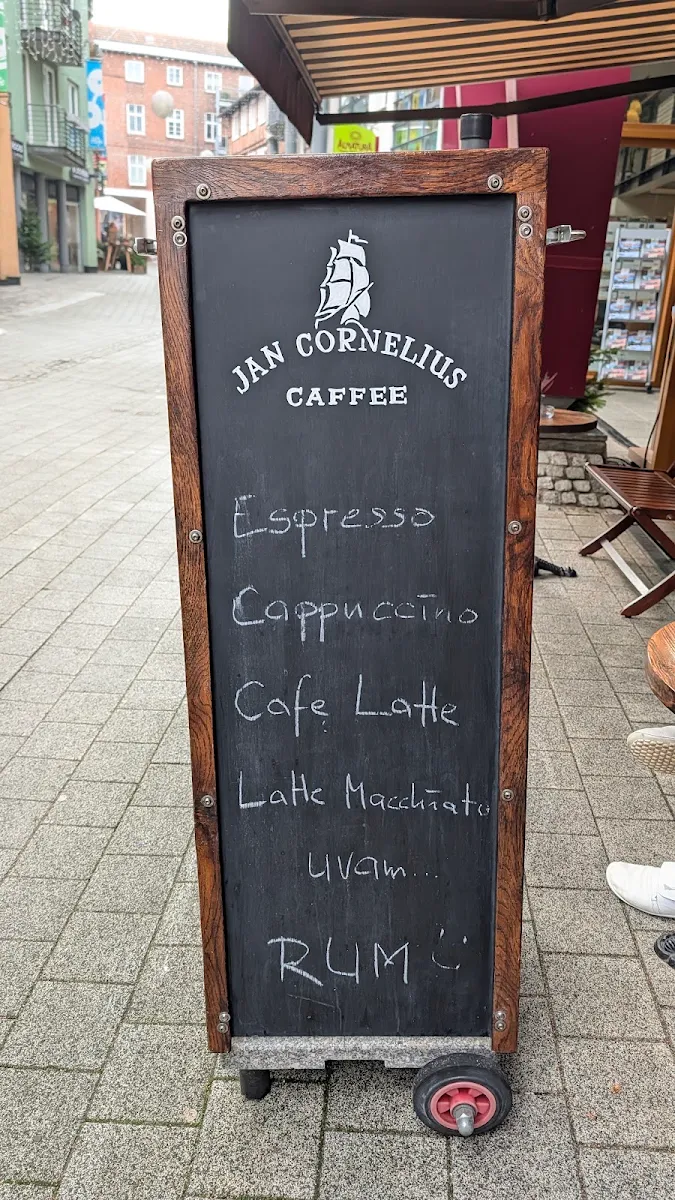 JAN CORNELIUS
CAFFEE
Espresso
Cappuccino
Cafe Latte
Latte Macchiato
uvam...
RUM :)